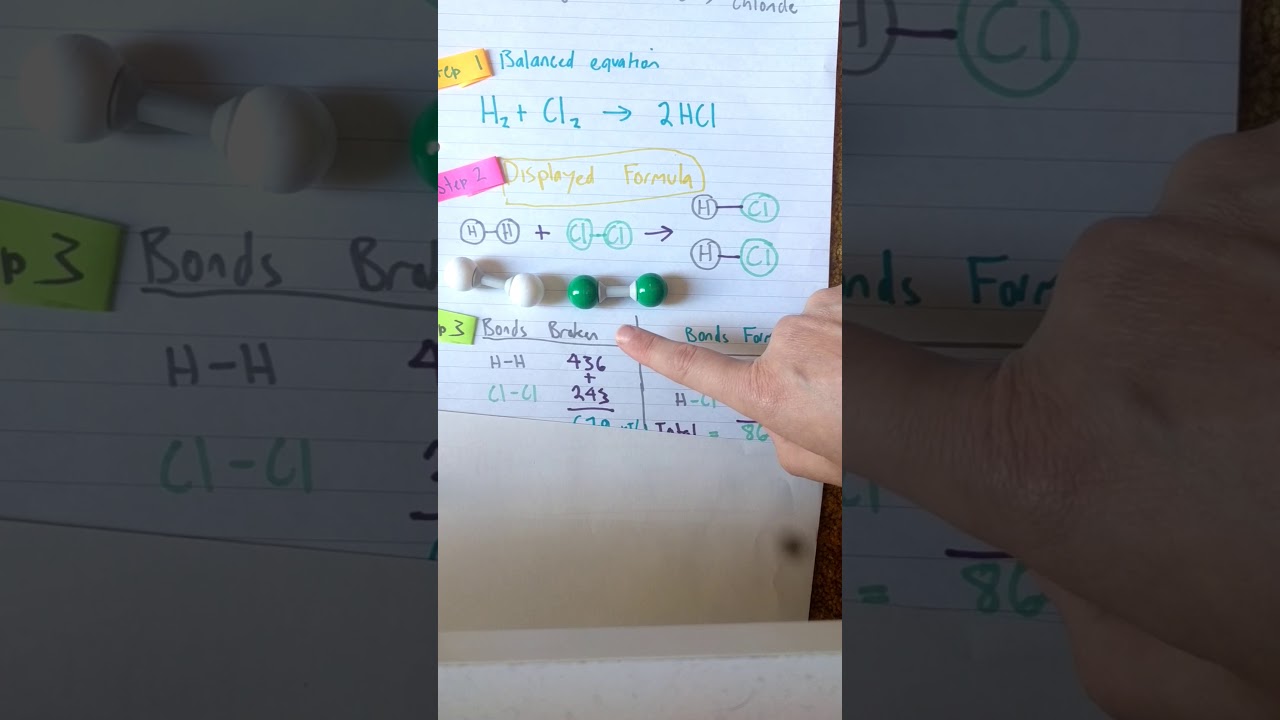 Chloride
1 Balanced equation
H₂ + Cl₂ → 2HCl
Step 2 Displayed Formula
H-H + Cl-Cl →
H-Cl
H-Cl
3 Bonds Broken Bonds
H-H 436
+
Cl-Cl 243
H-Cl
Total = 86